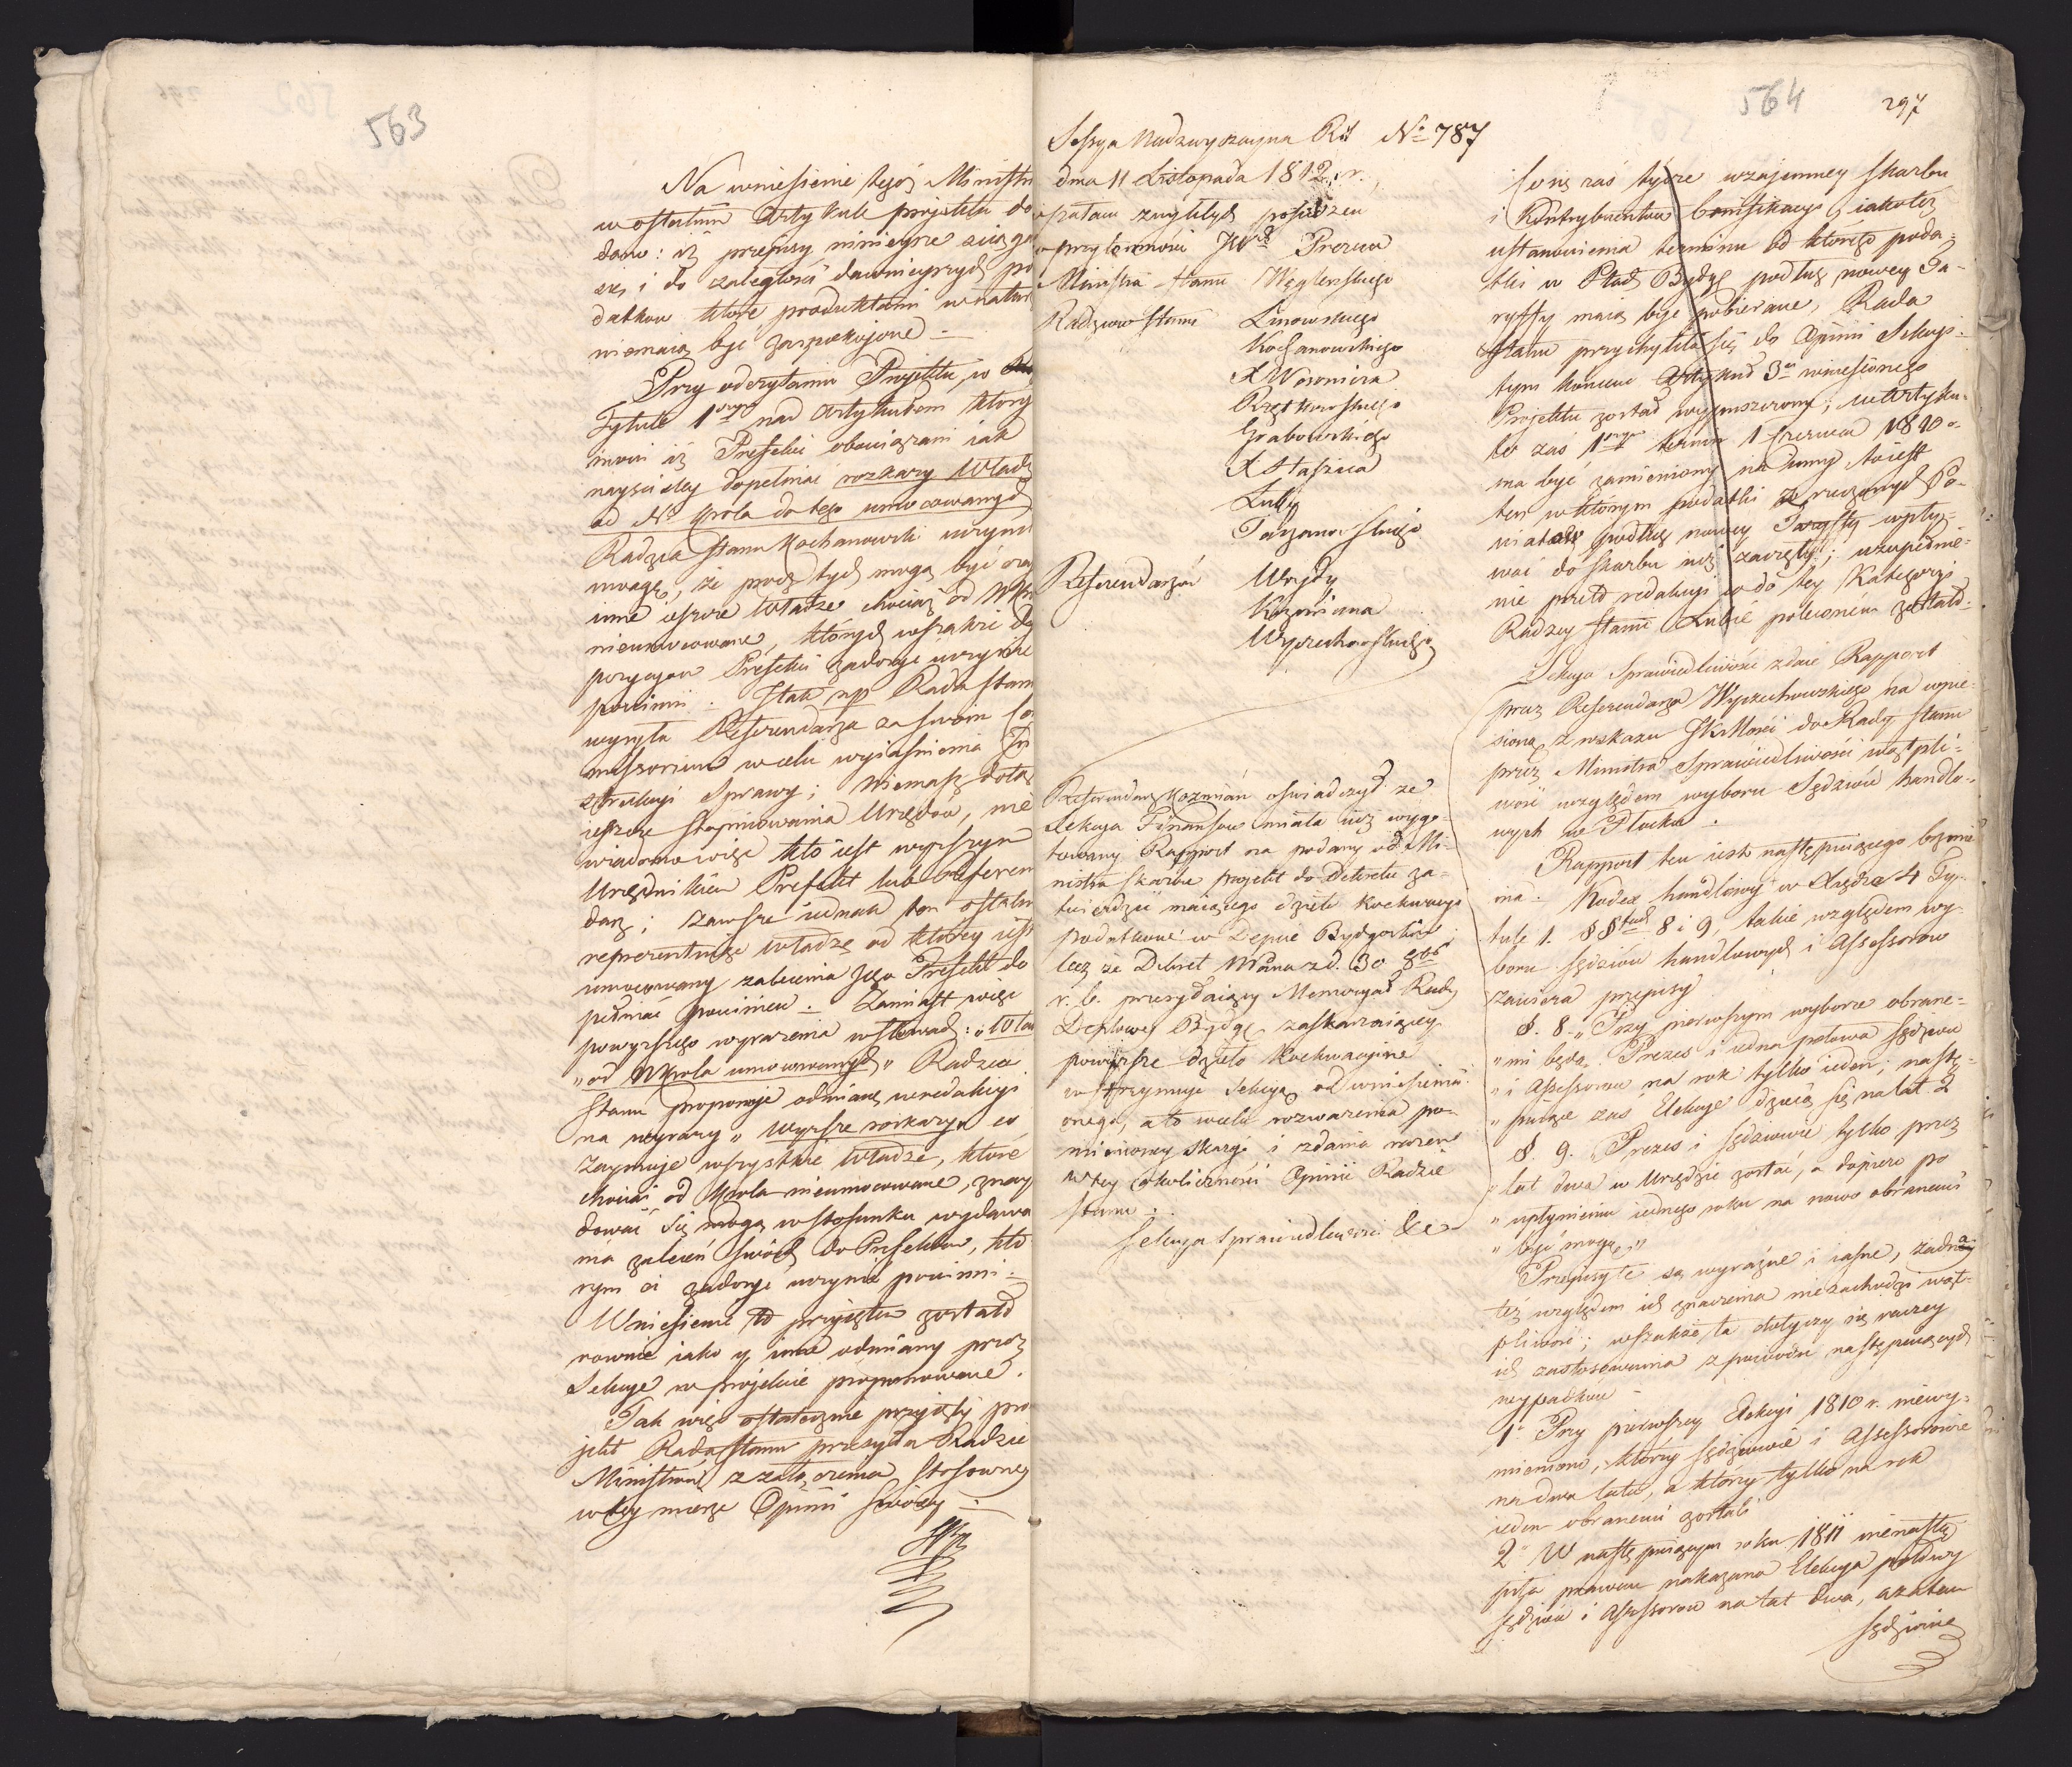 563
Na wniesienie tegóż Ministra
w ostatnim Artykule projektu do
dano: iż przepisy ninieysze sciąga
się i do zaległości dawnieyszych po
datkow które produktami w natur
niemaią być zaspokojone
Przy odczytaniu Projektu, w
Tytule 1szym nad Artykułem który
mówi iż Prefekci obowiązani iak
nayściśley dopełniać rozkazy Władz
od N. Króla do tego umocowanych
Radzca Stanu Kochanowski uczynił
uwagę, że prócz tych mogą być oraz
inne ieszcze Władze chociaż od NKróla
nieumocowane, których wszakże
Prefekci zadosyć uczynić
powinni. I tak np Rada Stanu
wysyła Referendarza za swoim Com
missorium w celu wyiaśnienia In
strukcyi Sprawy; Niemasz dotąd
ieszcze stopniowania Urzędów, nie
wiadomo więc kto iest wyższym
Urzędnikiem Prefekt lub Referen
darz; zawsze iednak ten ostatni
reprezentuje władzę od którey iest
umocowany zalecenia Jego Prefekt do
pełniać powinien. Zamiast więc
powyższego wyrażenia w słowach: „Wład
„od NKróla umocowanych" Radzca
Stanu proponuje odmianę w redakcyi
na wyrazy „Wyższe rozkazy" co
zaymuje wszystkie Władze, które
chociaż od Króla nieumocowane, znay
dować się mogą w stosunku wydawa
nia zaleceń swoich do Prefektów, któ
rym ci zadosyć uczynić powinni.
Wniesienie to przyjęte zostało
rownie iako y inne odmiany przez
Sekcye w projekcie proponowane.
Tak więc ostatecznie przyięty pro
jekt Rada Stanu przesyła Radzie
Ministrów z załączeniem stosowney
w tey mierze Opinii swoiey
564
297
Sessya Nadzwyczayna RSt No 787
dnia 11 Listopada 1812. r.
w pałacu zwykłych posiedzeń
w przytomności JW Prezesa
Ministra Stanu Węgleńskiego
Radzców Stanu Linowskiego
Kochanowskiego
X Woronicza
Rzętkowskiego
Grabowskiego
X Staszica
Łuby
Tarzanowskiego
Referendarzów Woydy
Koźmiana
Wyczechowskiego
Referendarz Koźmian oświadczył że
Sekcya Finansów miała iuż wygo-
towany Rapport na podany od Mi-
nistra Skarbu projekt do Dekretu za-
twierdzić maiącego dzieło Koekwacyi
podatkowe w Depcie Bydgoskim
lecz że Dekret NPana z d. 30 8bra
r. b. przesyłaiący Memoryał Rady
Deptowey Bydg. zaskarżaiącey
powyższe dzieło Koekwacyine
wstrzymuje Sekcyą od wniesienia
onego, a to w celu rozważenia po-
mienioney Skargi i zdania razem
w tey okoliczności Opinii Radzie
Stanu.
Sekcya Sprawiedliwości &c
się zaś tycze wzajemney Skarbu
i Kontrybuentów bonifikacyi, iakoteż
ustanowienia terminu od którego poda-
tki w Bydg. podług nowey Ta-
ryffy maią być pobierane, Rada
Stanu przychyliła się do Opinii Sekcyi
tym końcem Artykuł 3ci wniesionego
Projektu został wypuszczony; w Artyku-
le zaś 1szym termin 1 Czerwca 1810 r.
ma być zamieniony na inny, to iest
ten w którym podatki ze rzeczonych Po-
wiatów podług nowey Taryffy wpły-
wać do Skarbu iuż zaczęły; uzupełnie-
nie przeto redakcyi co do tey Kategoryi
Radzcy Stanu Łubie poleconém zostało.
Sekcya Sprawiedliwości zdaie Rapport
przez Referendarza Wyczechowskiego na wnie-
sioną z wskazu JKrMości do Rady Stanu
przez Ministra Sprawiedliwości wątpli-
wość względem wyboru Sędziów handlo-
wych w Płocku.
Rapport ten iest następuiącego brzmie
nia. Kodex handlowy w Xiędze 4 Ty-
tule 1. §§fach 8 i 9, takie względem wy-
boru Sędziów handlowych i Assessorów
zawiera przepisy
§. 8. „Przy pierwszym wyborze obrane-
„mi będą Prezes i iedna połowa Sędziów
„i Assessorów na rok tylko ieden; nastę-
„puiące zaś Elekcye dziać się na lat 2
§. 9. Prezes i Sędziowie tylko przez
„lat dwa w Urzędzie zostać, a dopiero po
„upłynieniu iednego roku na nowo obranemi
„być mogą"
Przepisy te są wyraźne i iasne, żadna
też względem ich znaczenia nie zachodzi wąt-
pliwość; wszakże ta dotyczy się raczey
ich zastosowania z powodu następuiących
wypadków
1o Przy pierwszey Elekcyi 1810 r. niewy-
mieniono, którzy Sędziowie i Assessorowie
na dwa lata, a którzy tylko na rok
ieden obranemi zostali
2o W następuiącym roku 1811 nienastą
piła prawem nakazana Elekcya połowy
Sędziów i Assessorów na lat dwa, a zatem
Sędziowie